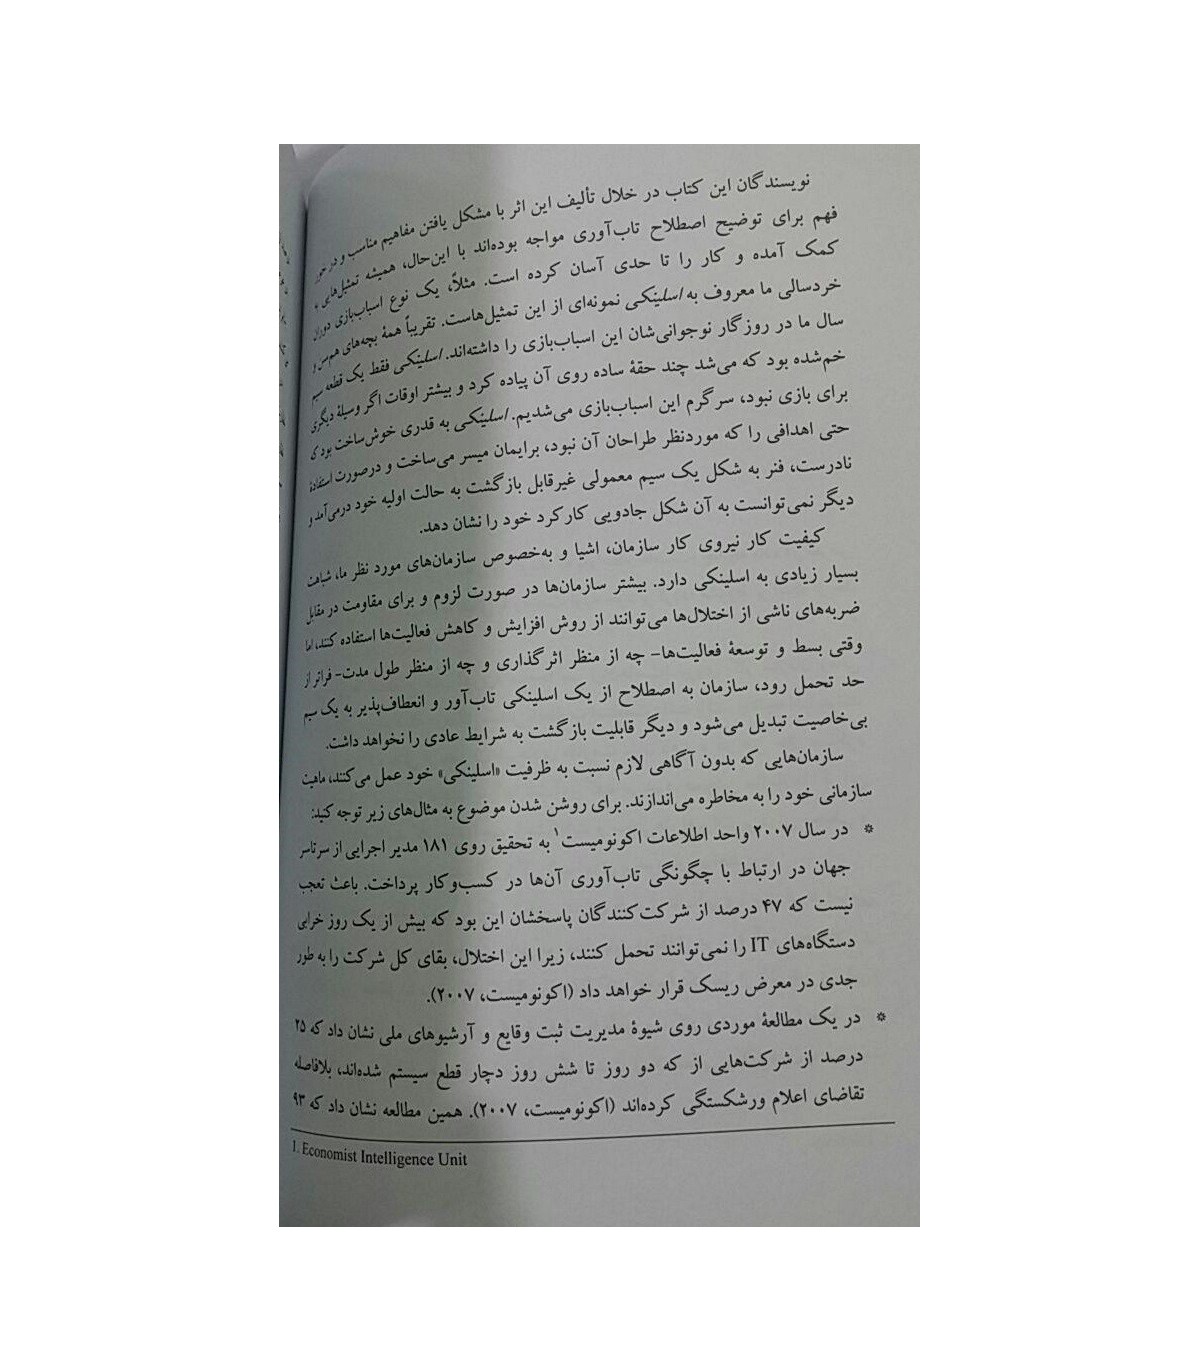 نویسندگان این کتاب در خلال تألیف این اثر با مشکل یافتن مفاهیم مناسب و در خور
فهم برای توضیح اصطلاح تاب‌آوری مواجه بوده‌اند با این‌حال، همیشه تمثیل‌هایی به
کمک آمده و کار را تا حدی آسان کرده است. مثلاً، یک نوع اسباب‌بازی دوران
خردسالی ما معروف به اسلینکی نمونه‌ای از این تمثیل‌هاست. تقریباً همهٔ بچه‌های هم‌سن و
سال ما در روزگار نوجوانی‌شان این اسباب‌بازی را داشته‌اند. اسلینکی فقط یک قطعه سیم
خم‌شده بود که می‌شد چند حقهٔ ساده روی آن پیاده کرد و بیشتر اوقات اگر وسیلهٔ دیگری
برای بازی نبود، سرگرم این اسباب‌بازی می‌شدیم. اسلینکی به قدری خوش‌ساخت بود که
حتی اهدافی را که موردنظر طراحان آن نبود، برایمان میسر می‌ساخت و درصورت استفادهٔ
نادرست، فنر به شکل یک سیم معمولی غیرقابل بازگشت به حالت اولیه خود درمی‌آمد و
دیگر نمی‌توانست به آن شکل جادویی کارکرد خود را نشان دهد.
کیفیت کار نیروی کار سازمان، اشیا و به‌خصوص سازمان‌های مورد نظر ما، شباهت
بسیار زیادی به اسلینکی دارد. بیشتر سازمان‌ها در صورت لزوم و برای مقاومت در مقابل
ضربه‌های ناشی از اختلال‌ها می‌توانند از روش افزایش و کاهش فعالیت‌ها استفاده کنند، اما
وقتی بسط و توسعهٔ فعالیت‌ها- چه از منظر اثرگذاری و چه از منظر طول مدت- فراتر از
حد تحمل رود، سازمان به اصطلاح از یک اسلینکی تاب‌آور و انعطاف‌پذیر به یک سیم
بی‌خاصیت تبدیل می‌شود و دیگر قابلیت بازگشت به شرایط عادی را نخواهد داشت.
سازمان‌هایی که بدون آگاهی لازم نسبت به ظرفیت «اسلینکی» خود عمل می‌کنند، ماهیت
سازمانی خود را به مخاطره می‌اندازند. برای روشن شدن موضوع به مثال‌های زیر توجه کنید:
* در سال ۲۰۰۷ واحد اطلاعات اکونومیست۱ به تحقیق روی ۱۸۱ مدیر اجرایی از سرتاسر
جهان در ارتباط با چگونگی تاب‌آوری آن‌ها در کسب‌وکار پرداخت. باعث تعجب
نیست که ۴۷ درصد از شرکت‌کنندگان پاسخشان این بود که بیش از یک روز خرابی
دستگاه‌های IT را نمی‌توانند تحمل کنند، زیرا این اختلال، بقای کل شرکت را به طور
جدی در معرض ریسک قرار خواهد داد (اکونومیست، ۲۰۰۷).
* در یک مطالعهٔ موردی روی شیوهٔ مدیریت ثبت وقایع و آرشیوهای ملی نشان داد که ۲۵
درصد از شرکت‌هایی از که دو روز تا شش روز دچار قطع سیستم شده‌اند، بلافاصله
تقاضای اعلام ورشکستگی کرده‌اند (اکونومیست، ۲۰۰۷). همین مطالعه نشان داد که ۹۳
1. Economist Intelligence Unit